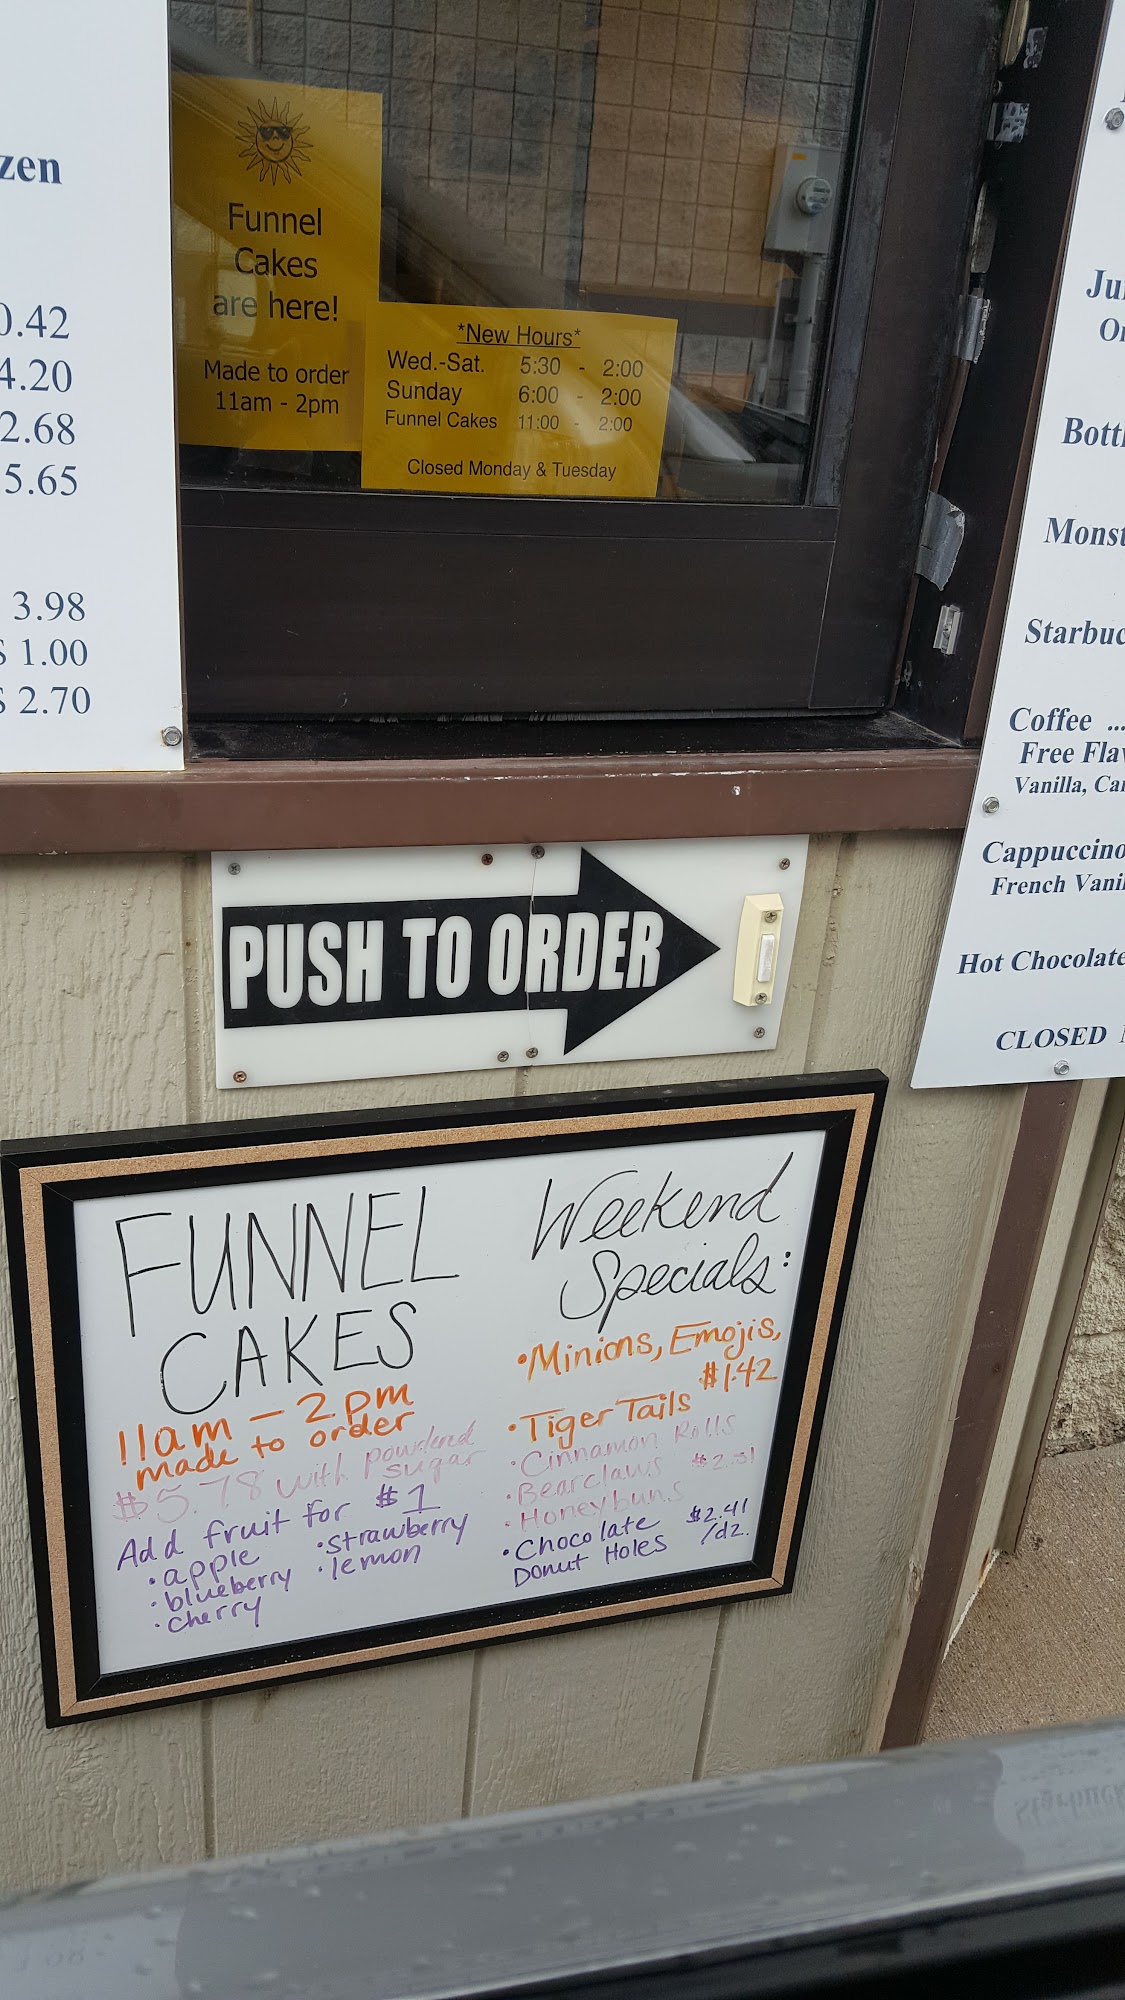 zen
0.42
4.20
2.68
5.65
3.98
$ 1.00
$ 2.70
Funnel
Cakes
are here!
Made to order
11am - 2pm
*New Hours*
Wed.-Sat. 5:30 - 2:00
Sunday 6:00 - 2:00
Funnel Cakes 11:00 - 2:00
Closed Monday & Tuesday
Coffee ...
Free Flav
Vanilla, Car
Cappuccino
French Vanil
Hot Chocolate
CLOSED
PUSH TO ORDER
FUNNEL
CAKES
11am - 2pm
made to order
$5.78 with powdered
sugar
Add fruit for $1
• apple
• blueberry
• cherry
• strawberry
• lemon
Weekend
Specials:
• Minions, Emojis,
$1.42
• Tiger Tails
• Cinnamon Rolls
• Bearclaws
• Honeybuns
• Chocolate $2.41
Donut Holes /dz.